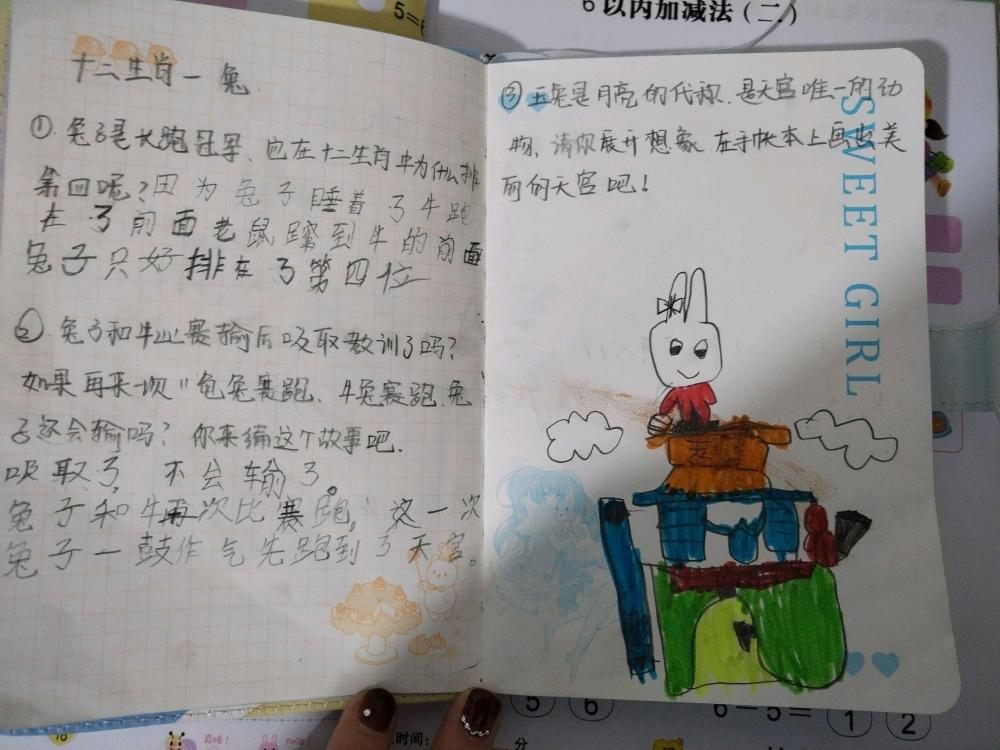 5=6
6以内加减法(二)
十二生肖一兔
①兔子是长跑冠军,它在十二生肖中为什么排
第四呢?因为兔子睡着了牛跑
在了前面老鼠蹿到牛的前面
兔子只好排在了第四位
②兔子和牛比赛输后吸取教训了吗?
如果再来一次"龟兔赛跑、牛兔赛跑,兔
子还会输吗?你来编这个故事吧.
吸取了,不会输了。
兔子和牛再次比赛跑,这一次
兔子一鼓作气先跑到了天宫。
③玉兔是月亮的代称,是天宫唯一的动
物,请你展开想象,在手帐本上画出美
丽的天宫吧!
SWEET GIRL
5 6
6-5= 1 2
时间: 分